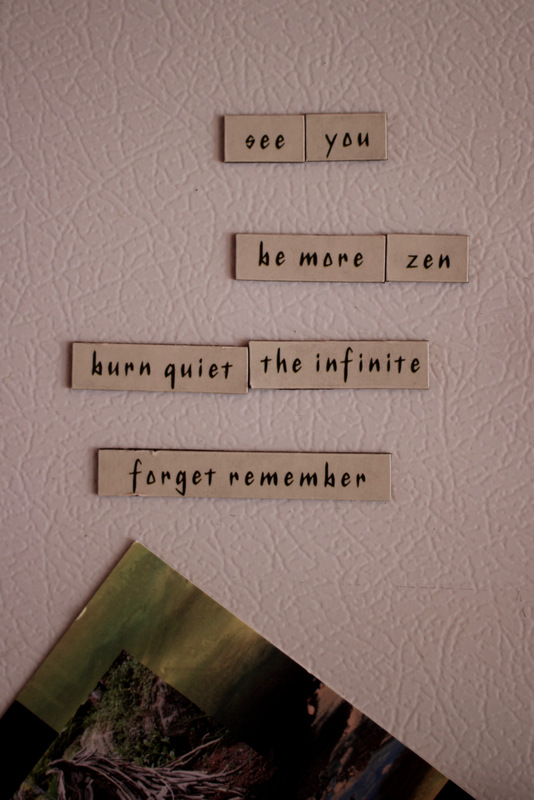 see you
be more zen
burn quiet the infinite
forget remember